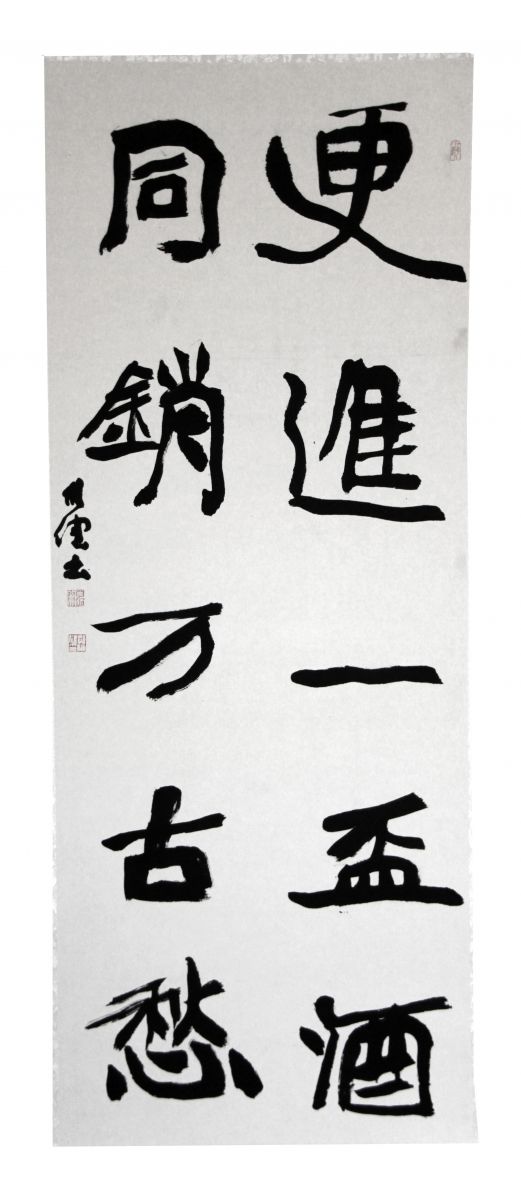 更進一盃酒
同銷万古愁